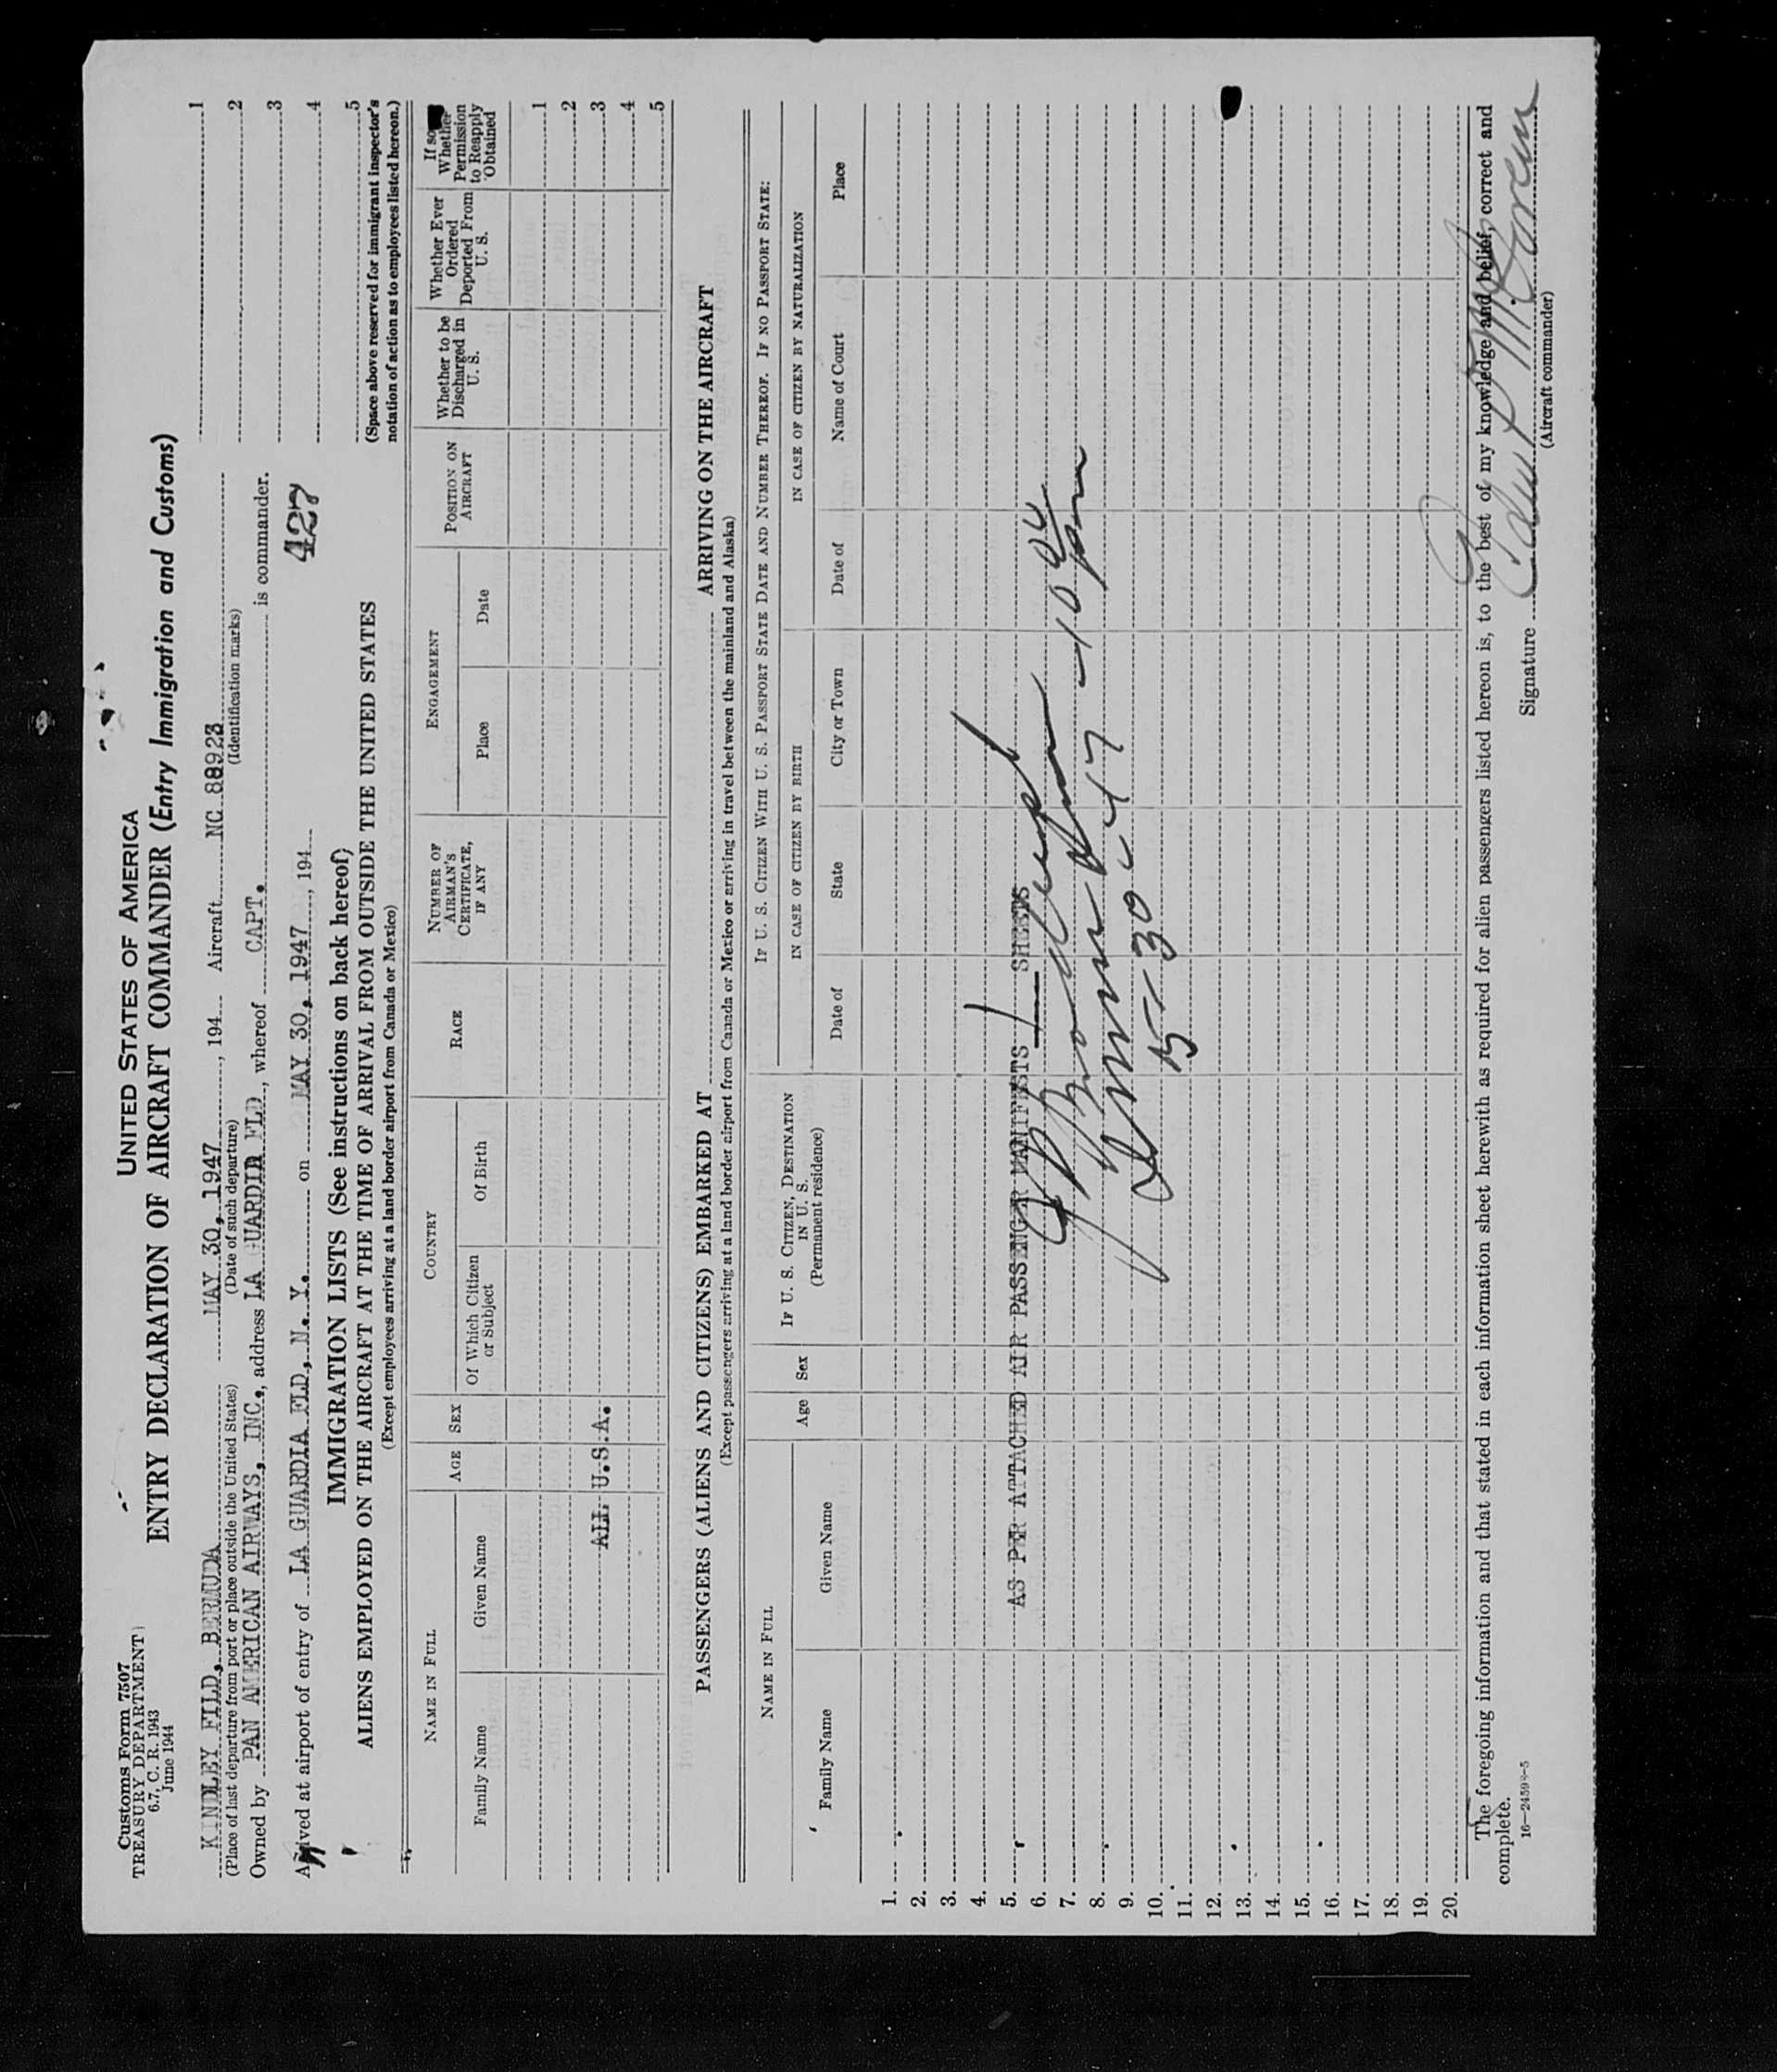 Customs Form 7507
TREASURY DEPARTMENT
6.7, C. R. 1943
June 1944
UNITED STATES OF AMERICA
ENTRY DECLARATION OF AIRCRAFT COMMANDER (Entry Immigration and Customs)
KINDLEY FILD, BERMUDA MAY 30, 1947, 194 Aircraft NC 88923
(Place of last departure from port or place outside the United States) (Date of such departure) (Identification marks)
Owned by PAN AMERICAN AIRWAYS, INC., address LA GUARDIA FLD, whereof CAPT. is commander.
Arrived at airport of entry of LA GUARDIA FLD, N. Y. on MAY 30, 1947, 194
427
1
2
3
4
5
(Space above reserved for immigrant inspector's
notation of action as to employees listed hereon.)
IMMIGRATION LISTS (See instructions on back hereof)
ALIENS EMPLOYED ON THE AIRCRAFT AT THE TIME OF ARRIVAL FROM OUTSIDE THE UNITED STATES
(Except employees arriving at a land border airport from Canada or Mexico)
NAME IN FULL AGE SEX COUNTRY RACE NUMBER OF AIRMAN'S CERTIFICATE, IF ANY ENGAGEMENT POSITION ON AIRCRAFT Whether to be Discharged in U. S. Whether Ever Ordered Deported From U. S. If so Whether Permission to Reapply Obtained
Family Name Given Name Of Which Citizen or Subject Of Birth Place Date
1
2
ALL U.S.A. 3
4
5
PASSENGERS (ALIENS AND CITIZENS) EMBARKED AT ARRIVING ON THE AIRCRAFT
(Except passengers arriving at a land border airport from Canada or Mexico or arriving in travel between the mainland and Alaska)
NAME IN FULL Age Sex IF U. S. CITIZEN, DESTINATION IN U. S. (Permanent residence) IF U. S. CITIZEN WITH U. S. PASSPORT STATE DATE AND NUMBER THEREOF. IF NO PASSPORT STATE:
IN CASE OF CITIZEN BY BIRTH IN CASE OF CITIZEN BY NATURALIZATION
Family Name Given Name Date of State City or Town Date of Name of Court Place
1.
2.
3.
4.
5. AS PER ATTACHED AIR PASSENGER MANIFESTS 1 SHEETS
6.
7.
8.
9.
10. 5-30-47-10 pm
11.
12.
13.
14.
15.
16.
17.
18.
19.
20.
The foregoing information and that stated in each information sheet herewith as required for alien passengers listed hereon is, to the best of my knowledge and belief, correct and
complete.
Signature
(Aircraft commander)
16—24598-5